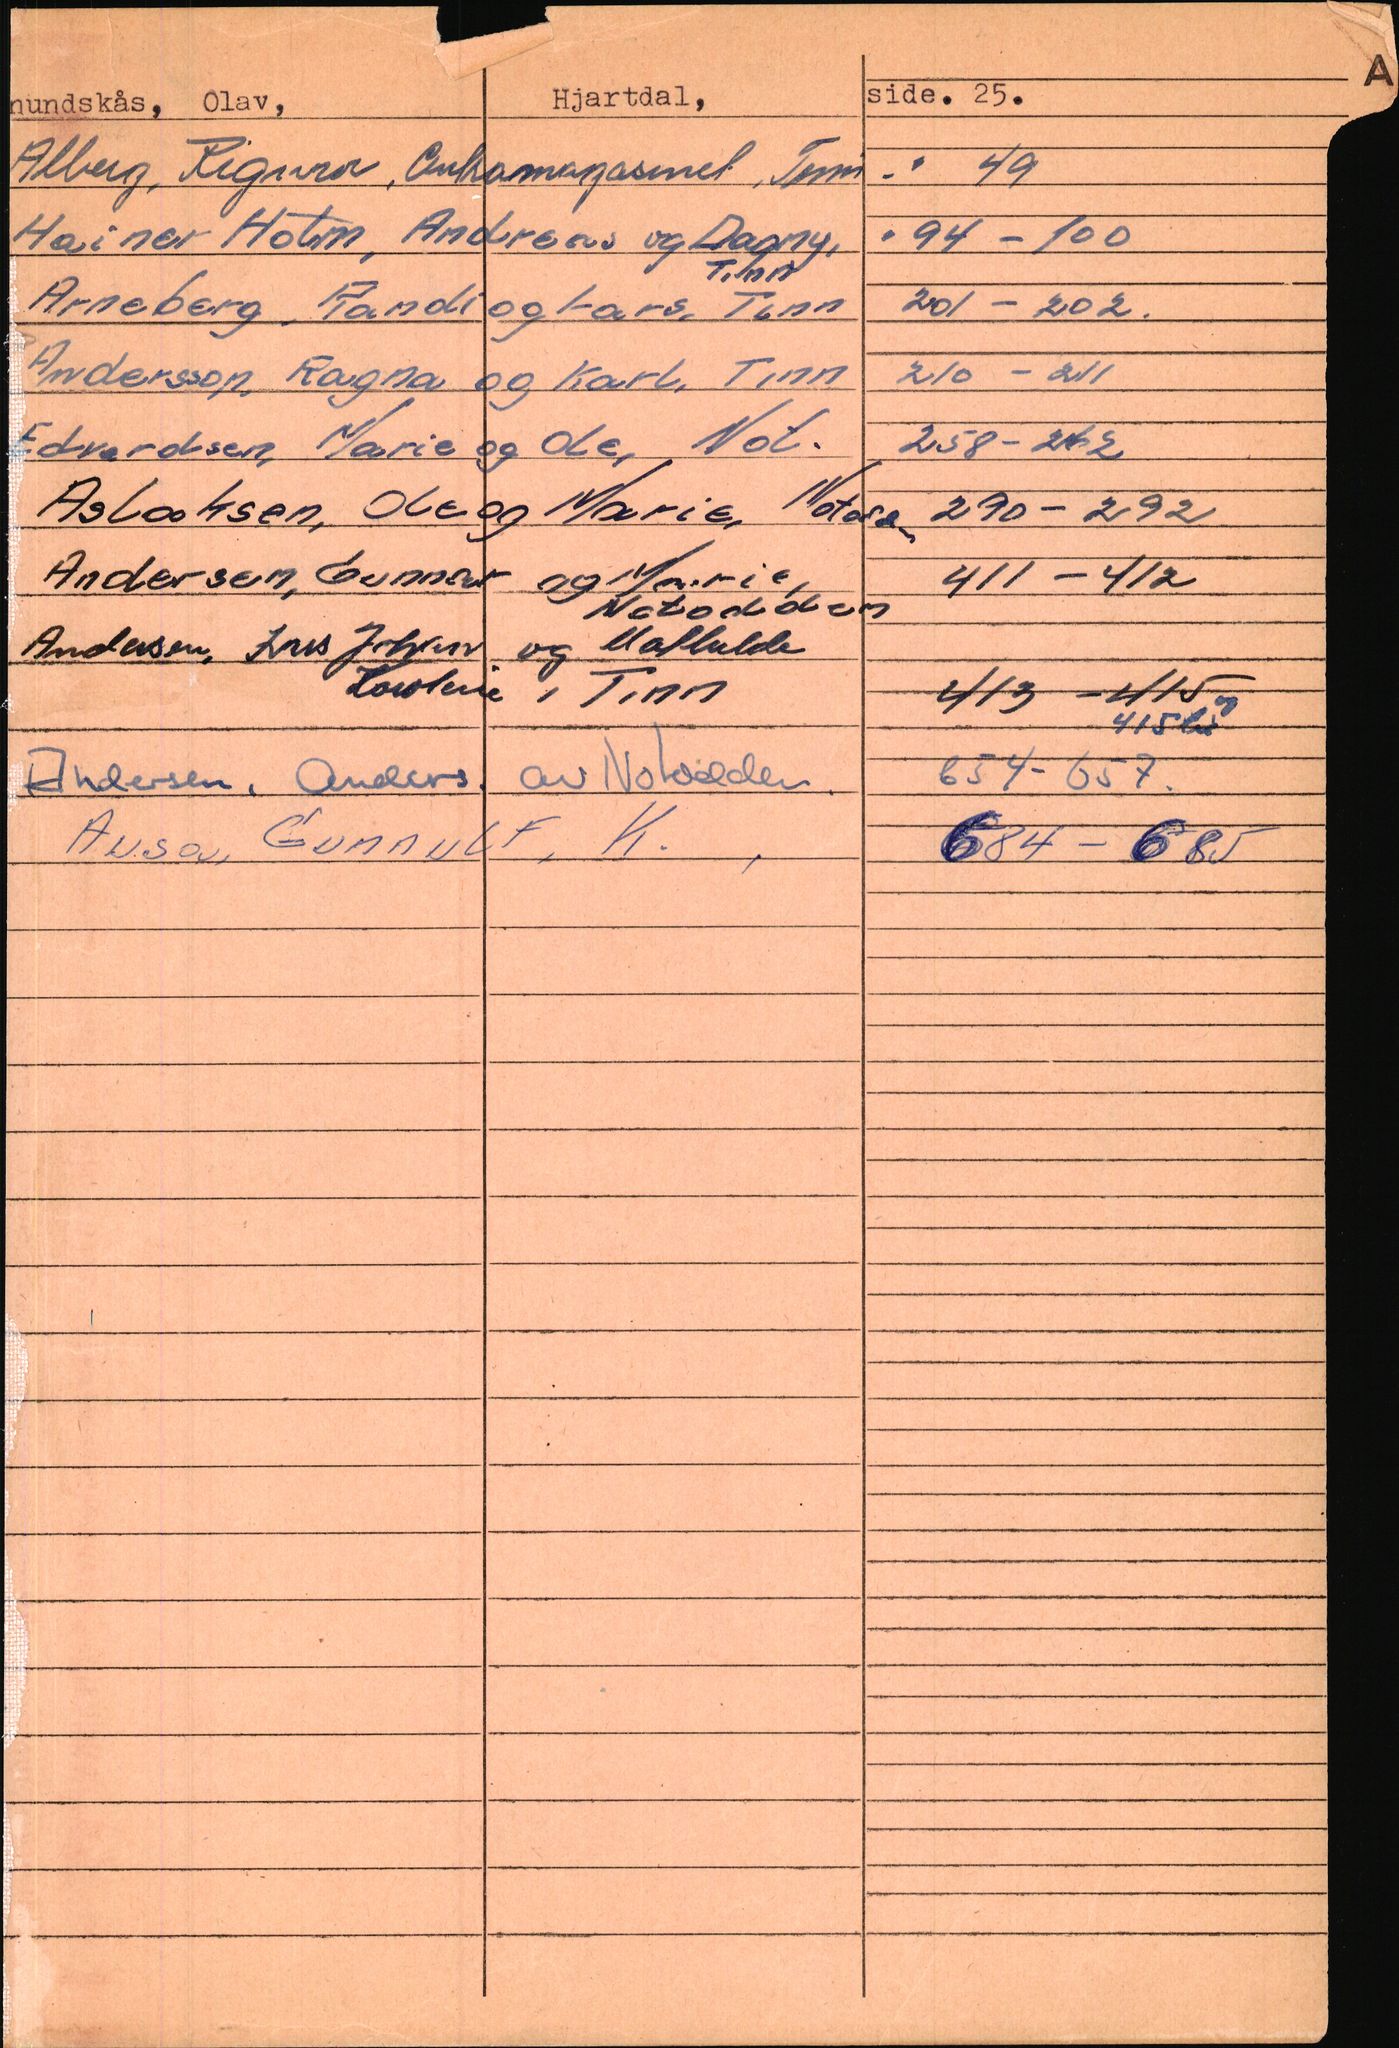 A
mundskås, Olav, Hjartdal, side. 25.
Alberg, Sigurd, Tinn - " 49
Hainer Holm, Andreas og Dagny, " 94 - 100
Tinn
Arneberg, Randi og Lars, Tinn 201 - 202.
Andersson, Ragna og Karl, Tinn 210 - 211
Edvardsen, Marie og Ole, Not. 258 - 262
Aslaksen, Ole og Marie, 290 - 292
Andersen, Gunnar og Marie, 411 - 412
Notodden
Andersen, Jens Johan og Mathilde
, Tinn 413 - 415 og
415 bis
Andersen, Anders. av Notodden. 654 - 657.
Gunnulf, K. , 684 - 685